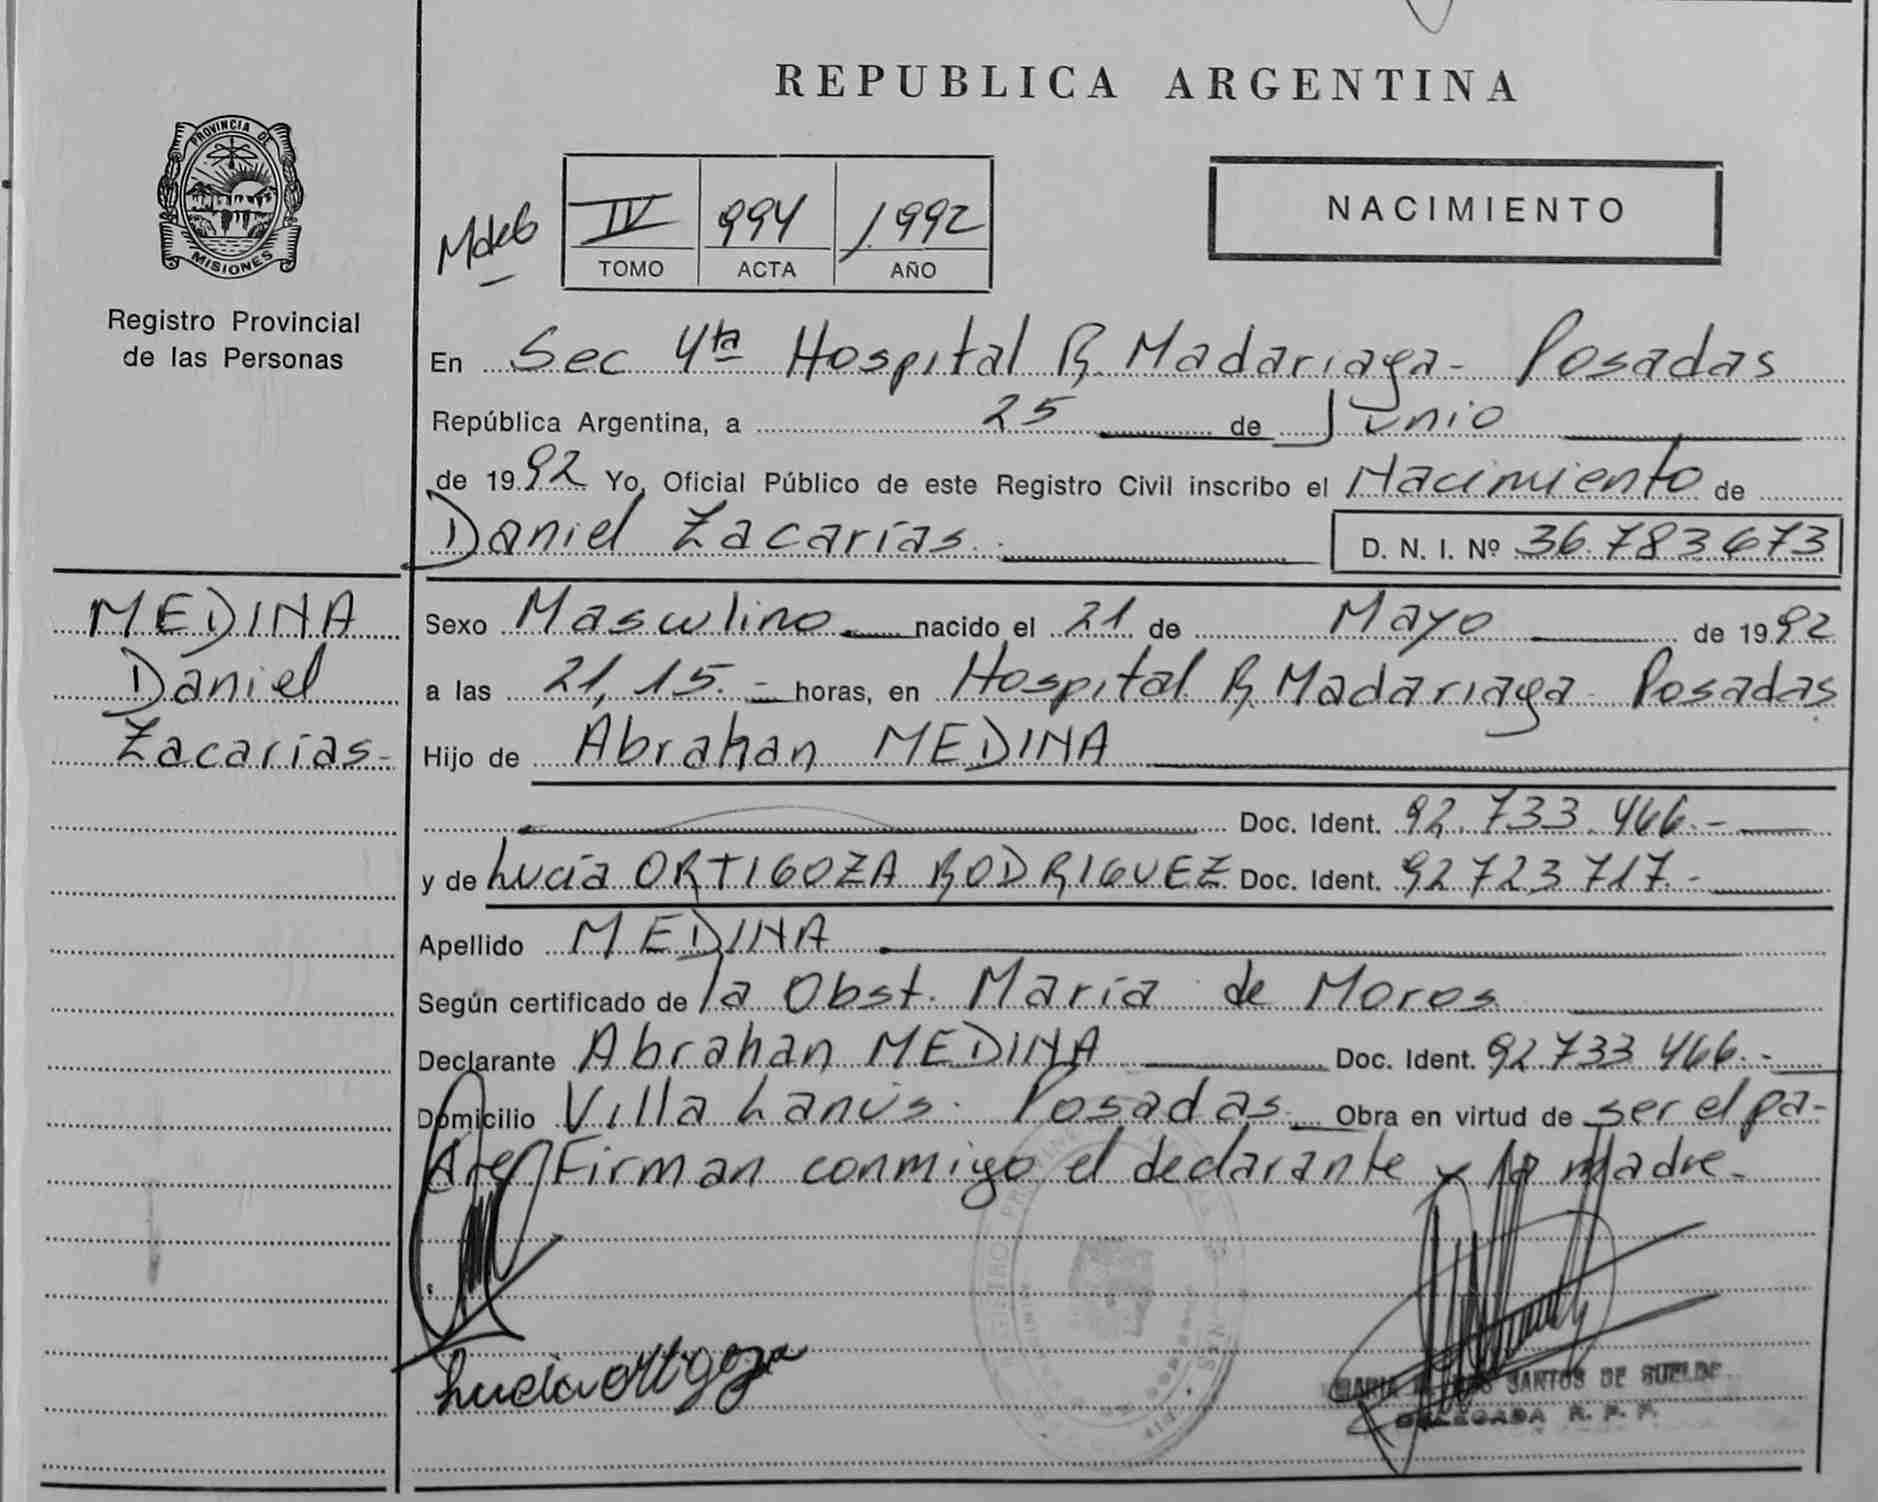 REPUBLICA ARGENTINA
PROVINCIA DE
MISIONES
Registro Provincial
de las Personas
IV 994 1992
TOMO ACTA AÑO
NACIMIENTO
En Sec 4ta Hospital R. Madariaga - Posadas
República Argentina, a 25 de Junio
de 1992 Yo, Oficial Público de este Registro Civil inscribo el Nacimiento de
Daniel Zacarías. D. N. I. Nº 36.783.673
MEDINA
Daniel
Zacarías-
Sexo Masculino nacido el 21 de Mayo de 1992
a las 21,15.- horas, en Hospital R. Madariaga - Posadas
Hijo de Abrahan MEDINA
Doc. Ident. 92.733.466.-
y de Lucía ORTIGOZA RODRIGUEZ Doc. Ident. 92723717.-
Apellido MEDINA
Según certificado de la Obst. María de Moros
Declarante Abrahan MEDINA Doc. Ident. 92.733.466.-
Domicilio Villa Lanús. Posadas. Obra en virtud de ser el pa-
dre. Firman conmigo el declarante y la madre-
Lucia Ortigoza
MARIA SANTOS DE SUELDE
DELEGADA R. P. P.